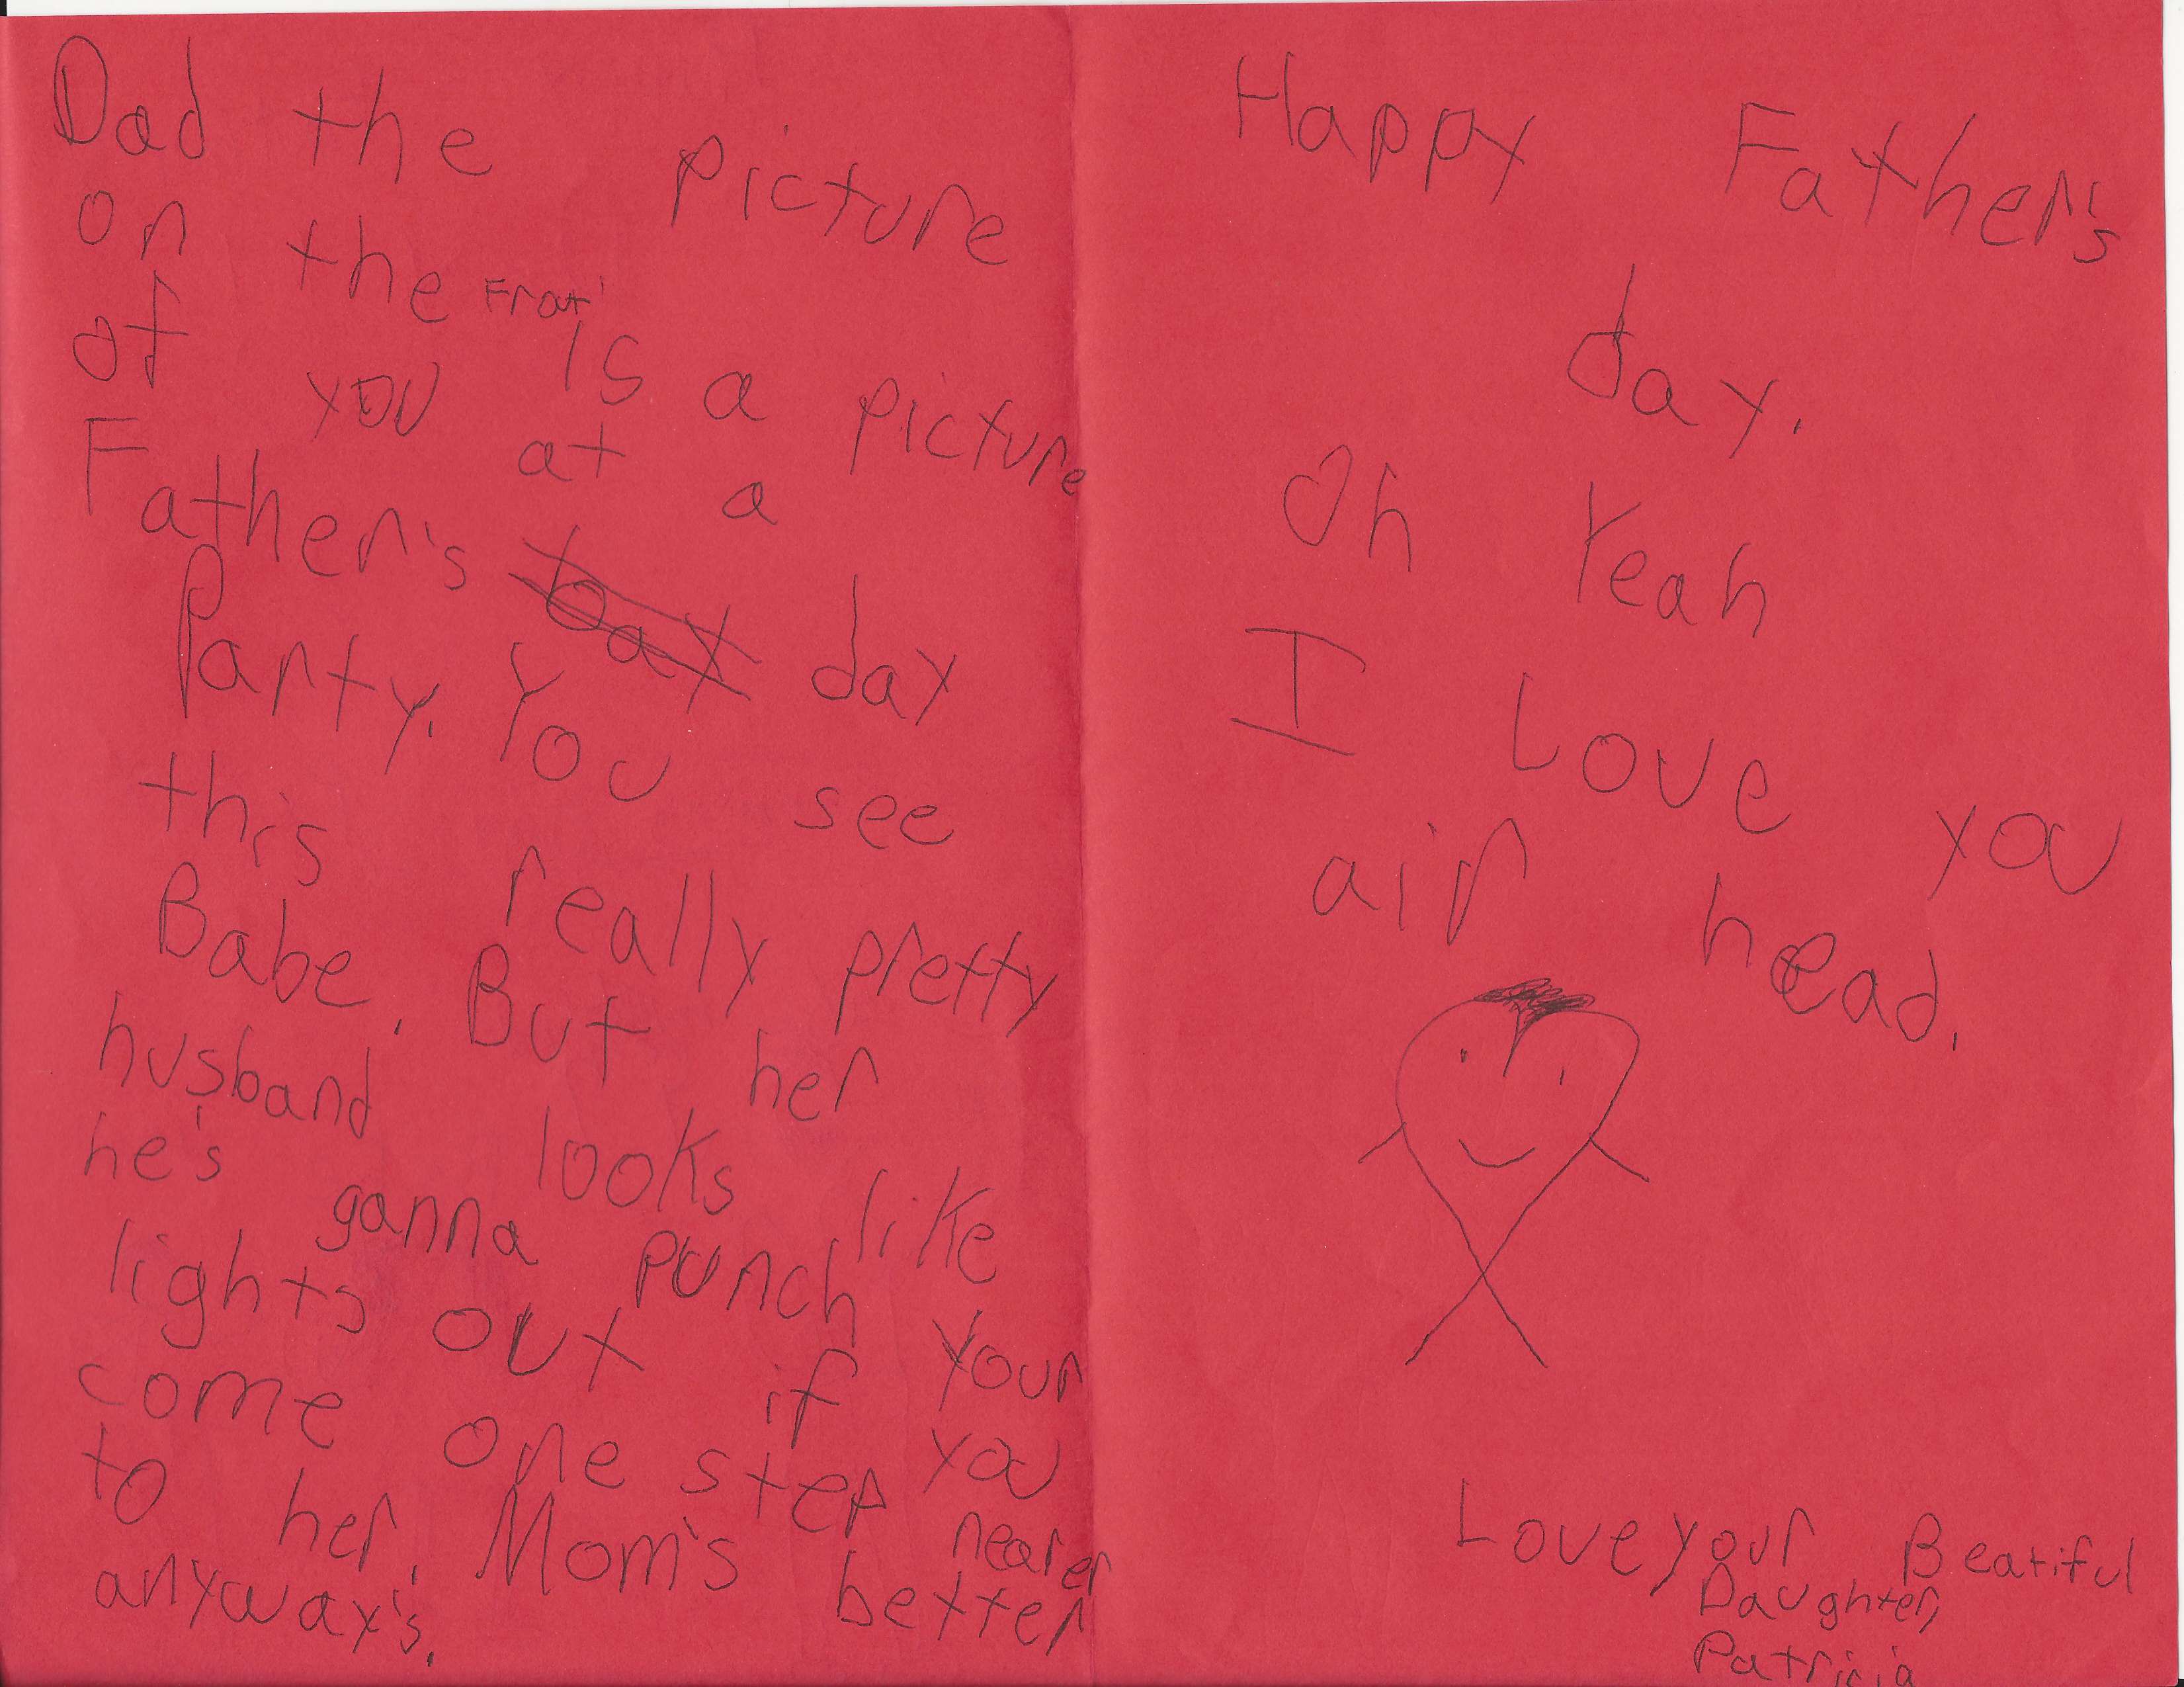 Dad the picture
on the Frot is a picture
of you at a
Father's bay day
Party. You see
this really pretty
Babe. But her
husband looks like
he's ganna punch your
lights out if you
come one step nearer
to her. Mom's better
anyway's.
Happy Father's
day.
Oh Yeah
I Love you
air head.
Love your Beatiful
Daughter,
Patricia